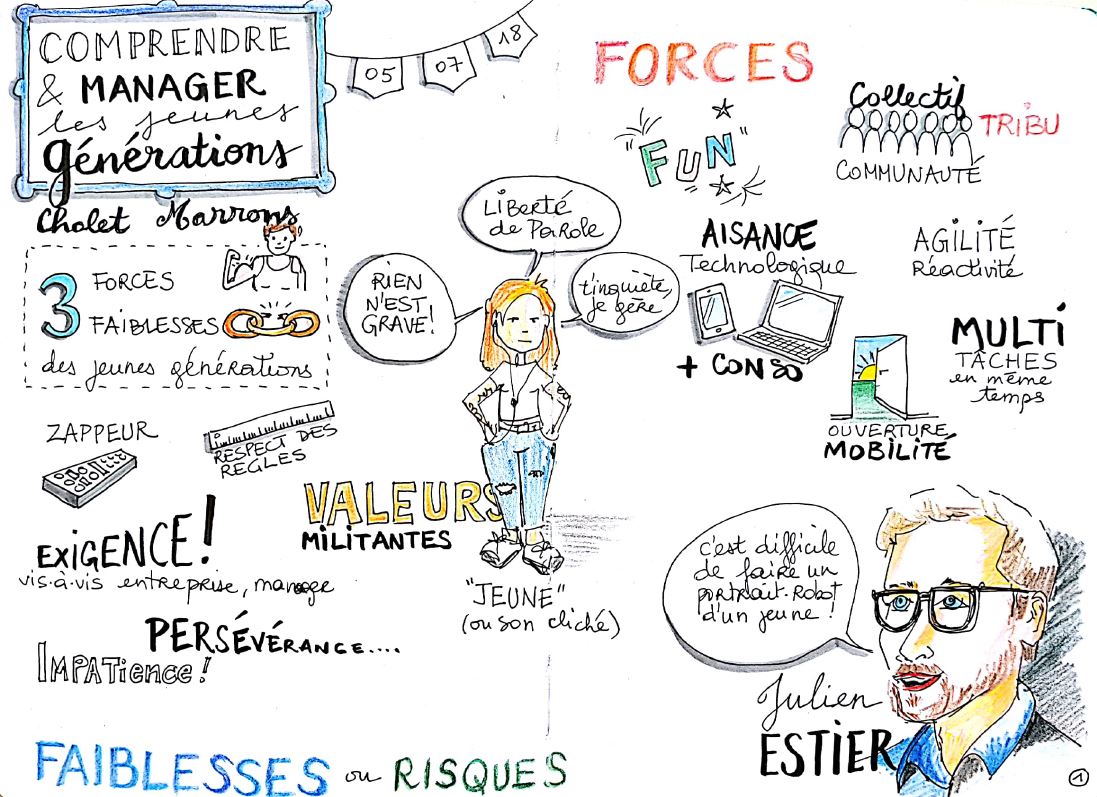 COMPRENDRE
& MANAGER
les jeunes
générations
05
07
18
Chalet Marrons
3
FORCES
FAIBLESSES
des jeunes générations
ZAPPEUR
RESPECT DES
RÈGLES
EXIGENCE !
vis-à-vis entreprise, manager
PERSÉVÉRANCE....
IMPATIENCE !
VALEURS
MILITANTES
LIBERTÉ
de PaRole
RIEN
N'EST
GRAVE!
t'inquiète,
je gère
"JEUNE"
(ou son cliché)
FORCES
"FUN"
Collectif
TRIBU
COMMUNAUTÉ
AISANCE
Technologique
+ CONSO
AGILITÉ
Réactivité
MULTI
TÂCHES
en même
temps
OUVERTURE
MOBILITÉ
c'est difficile
de faire un
portrait-Robot
d'un jeune !
Julien
ESTIER
FAIBLESSES ou RISQUES
1